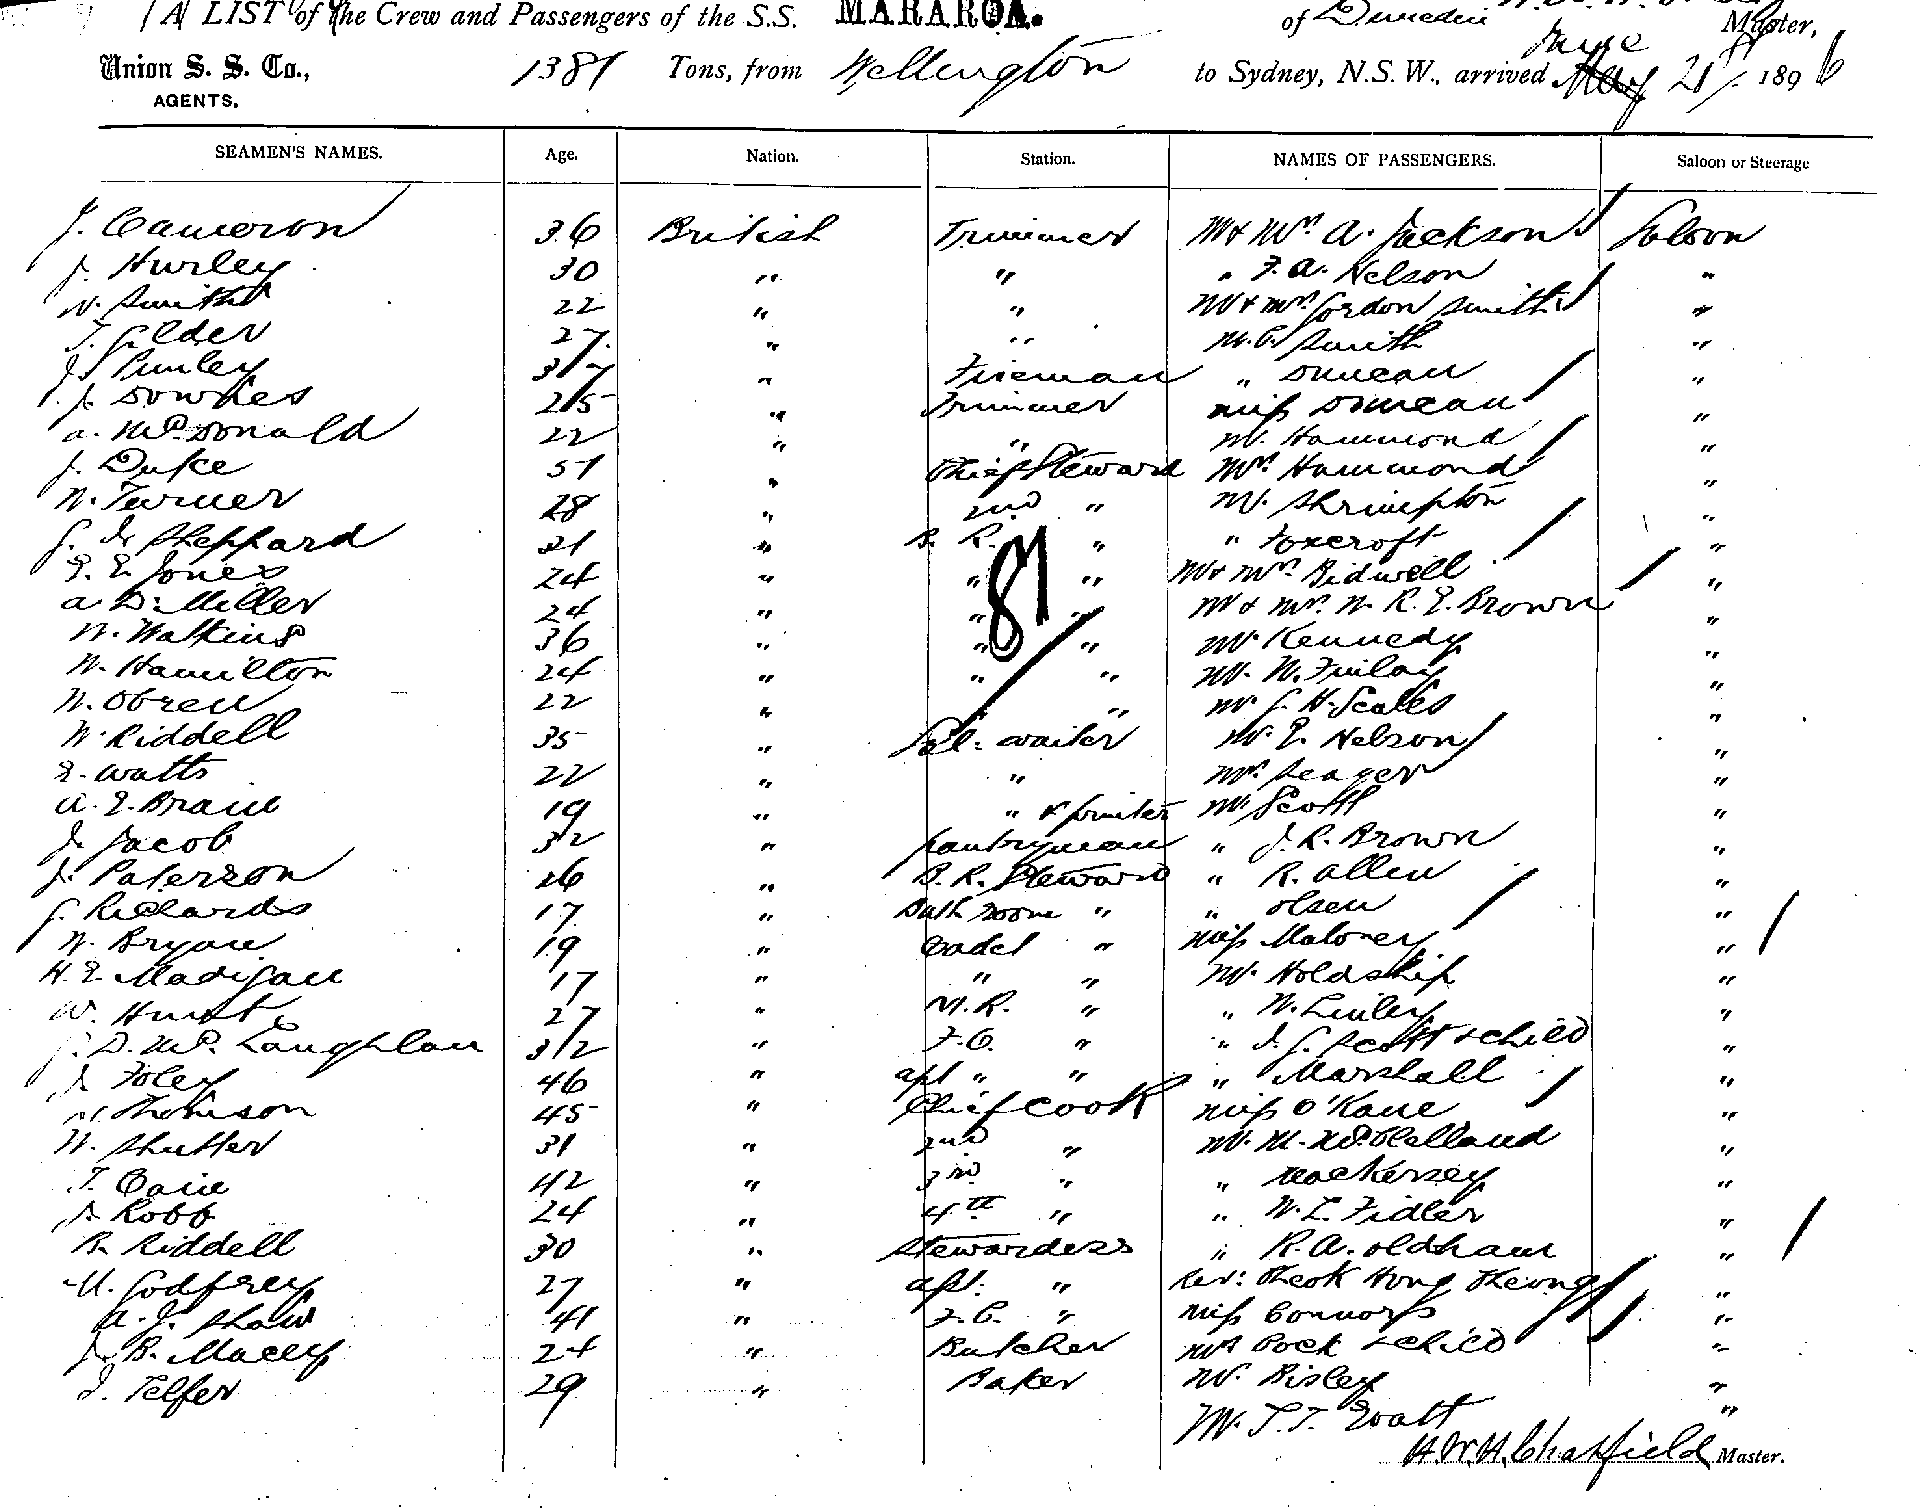 (A) LIST of the Crew and Passengers of the S.S. MARAROA. of Dunedin Master,
Union S. S. Co., AGENTS. 1381 Tons, from Wellington to Sydney, N.S.W., arrived June 21 / 1896
SEAMEN'S NAMES. Age. Nation. Station. NAMES OF PASSENGERS. Saloon or Steerage
J. Cameron 36 British Trimmer Mr & Mrs A. Jackson Saloon
J. Hurley 30 " " " F. A. Nelson "
W. Smith 22 " " Mr & Mrs Gordon Smith "
T. Gilder 27 " " M. C. Smith "
J. Purley 37 " Fireman " Duncan "
J. Downes 25 " Trimmer Miss Duncan "
A. McDonald 22 " " Mr. Hammond "
J. Duke 51 " Chief Steward Mrs Hammond "
W. Turner 28 " 2nd " Mr. Shrimpton "
G. J. Sheppard 21 " B. R. " " Foxcroft "
E. E. Jones 24 " " " Mr & Mrs Bidwell "
A. D. Miller 24 " " " Mr & Mrs W. R. E. Brown "
W. Watkins 36 " " " Mr Kennedy "
W. Hamilton 24 " " " Mr. W. Finlay "
W. Obren 22 " " Mr G. H. Scales "
W. Riddell 35 " Sal. waiter Mr. E. Nelson "
E. Watts 22 " " Mrs Seager "
A. E. Braid 19 " " & printer Mr Scott "
J. Jacob 32 " pantryman " J. R. Brown "
J. Paterson 26 " B. R. Steward " R. Allen "
G. Richards 17 " Bath Room " " Olsen "
W. Bryan 19 " Cadet " Miss Maloney "
H. E. Madigan 17 " " " Mr. Holdship "
W. Hunt 27 " M. R. " " W. Linley "
J. D. McLaughlan 32 " F. C. " " J. G. Scott schild "
J. Foley 46 " aft " " " Marshall "
Thomson 45 " Chief Cook Miss O'Kane "
W. Shutter 31 " 2nd " Mr. M. McClelland "
T. Cain 42 " 3rd " " Mackersey "
J. Robb 24 " 4th " " W. L. Fidler "
B. Riddell 30 " Stewardess " R. A. Oldham "
M. Godfrey 27 " aft. " Rev: Cheok Hong Cheong "
A. J. Shaw 41 " F. C. " Miss Connors "
J. B. Macey 24 " Butcher Mrs Rock schild "
J. Telfer 29 " Baker Mr. Risley "
Mr. T. T. Watt "
H. W. H. Chatfield Master.
87